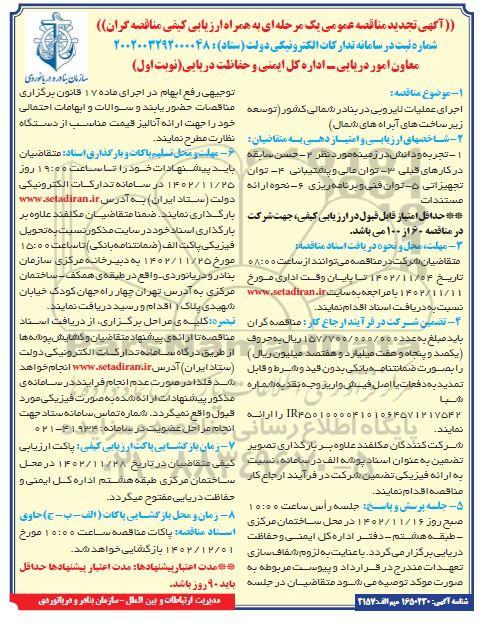 ((آگهی تجدید مناقصه عمومی یک مرحله ای به همراه ارزیابی کیفی مناقصه گران))
شماره ثبت در سامانه تدارکات الکترونیکی دولت (ستاد): ۲۰۰۲۰۰۳۲۹۲۰۰۰۰۴۸
معاون امور دریایی - اداره کل ایمنی و حفاظت دریایی (نوبت اول)
سازمان بنادر و دریانوردی
۱- موضوع مناقصه:
اجرای عملیات لایروبی در بنادر شمالی کشور (توسعه
زیر ساخت های آبراه های شمال)
۲- شاخصهای ارزیابی و امتیاز دهی به متقاضیان:
۱- تجربه و دانش در زمینه مورد نظر ۲- حسن سابقه
در کارهای قبلی ۳- توان مالی و پشتیبانی ۴- توان
تجهیزاتی ۵- توان فنی و برنامه ریزی ۶- نحوه ارائه
مستندات
**حداقل امتیاز قابل قبول در ارزیابی کیفی، جهت شرکت
در مناقصه ۶۰ از ۱۰۰ می باشد.
۳- مهلت، محل و نحوه دریافت اسناد مناقصه:
متقاضیان شرکت در مناقصه می توانند از ساعت ۰۸:۰۰
تاریخ ۱۴۰۲/۱۱/۰۴ تا پایان وقت اداری مورخ
۱۴۰۲/۱۱/۱۱ با مراجعه به سایت www.setadiran.ir
نسبت به دریافت اسناد اقدام نمایند.
۴- تضمین شرکت در فرآیند ارجاع کار: مناقصه گران
باید مبلغ به عدد ۱۵۷/۷۰۰/۰۰۰/۰۰۰ ریال به حروف
(یکصد و پنجاه و هفت میلیارد و هفتصد میلیون ریال)
را بصورت ضمانتنامه بانکی بدون قید و شرط و قابل
تمدید به دفعات یا اصل فیش واریز وجه نقد به شماره
شبا
IR۴۵۰۱۰۰۰۰۴۱۰۱۰۶۴۵۷۱۲۱۷۵۴۲ را ارائه
نمایند.
شرکت کنندگان مکلفند علاوه بر بارگذاری تصویر
تضمین به عنوان اسناد پوشه الف در سامانه، نسبت
به ارائه فیزیکی تضمین شرکت در فرآیند ارجاع کار
مناقصه اقدام نمایند.
۵- جلسه پرسش و پاسخ: جلسه رأس ساعت ۱۰:۰۰
صبح روز ۱۴۰۲/۱۱/۱۶ در محل ساختمان مرکزی
-طبقه هشتم- دفتر اداره کل ایمنی و حفاظت
دریایی برگزار می گردد. با عنایت به لزوم شفاف سازی
تعهدات مندرج در قرارداد و پیوست مربوطه به
صورت موکد توصیه می شود متقاضیان در جلسه
توجیهی رفع ابهام در اجرای ماده ۱۷ قانون برگزاری
مناقصات حضور یابند و سوالات و ابهامات احتمالی
خود را جهت ارائه آنالیز قیمت مناسب از دستگاه
نظارت مطرح نمایند.
۶- مهلت و محل تسلیم پاکات و بارگذاری اسناد: متقاضیان
باید پیشنهادات خود را تا ساعت ۱۹:۰۰ روز
۱۴۰۲/۱۱/۲۵ در سامانه تدارکات الکترونیکی
دولت (ستاد ایران) به آدرس www.setadiran.ir
بارگذاری نمایند. ضمنا متقاضیان مکلفند علاوه بر
بارگذاری اسناد خود در سایت مذکور نسبت به تحویل
فیزیکی پاکت الف (ضمانتنامه بانکی) تا ساعت ۱۵:۰۰
مورخ ۱۴۰۲/۱۱/۲۵ به دبیرخانه مرکزی سازمان
بنادر و دریانوردی- واقع در طبقه ی همکف- ساختمان
مرکزی به آدرس تهران چهار راه جهان کودک خیابان
شهیدی پلاک ۱ اقدام و رسید دریافت نمایند.
تبصره: کلیه ی مراحل برگزاری، از دریافت اسناد
مناقصه تا ارائه ی پیشنهاد متقاضیان و گشایش پوشه ها
از طریق درگاه سامانه تدارکات الکترونیکی دولت
(ستاد ایران) آدرس www.setadiran.ir انجام خواهد
شد فلذا در صورت عدم انجام فرایند در سامانه ی
مذکور پیشنهادات ارائه شده به صورت فیزیکی مورد
قبول واقع نمیگردد. شماره تماس سامانه ستاد جهت
انجام مراحل عضویت در سامانه: ۴۱۹۳۴-۰۲۱
۷- زمان بازگشایی پاکت ارزیابی کیفی: پاکت ارزیابی
کیفی متقاضیان در تاریخ ۱۴۰۲/۱۱/۲۸ در محل
ساختمان مرکزی طبقه هشتم اداره کل ایمنی و
حفاظت دریایی مفتوح میگردد.
۸- زمان و محل بازگشایی پاکات (الف - ب - ج) حاوی
اسناد مناقصه: پاکات مناقصه ساعت ۱۰:۰۰ مورخ
۱۴۰۲/۱۲/۰۱ بازگشایی خواهد شد.
**مدت اعتبار پیشنهادها: مدت اعتبار پیشنهادها حداقل
باید ۹۰ روز باشد.
شناسه آگهی: ۱۶۵۰۲۳۰ میم الف: ۴۱۵۷
مدیریت ارتباطات و بین الملل - سازمان بنادر و دریانوردی